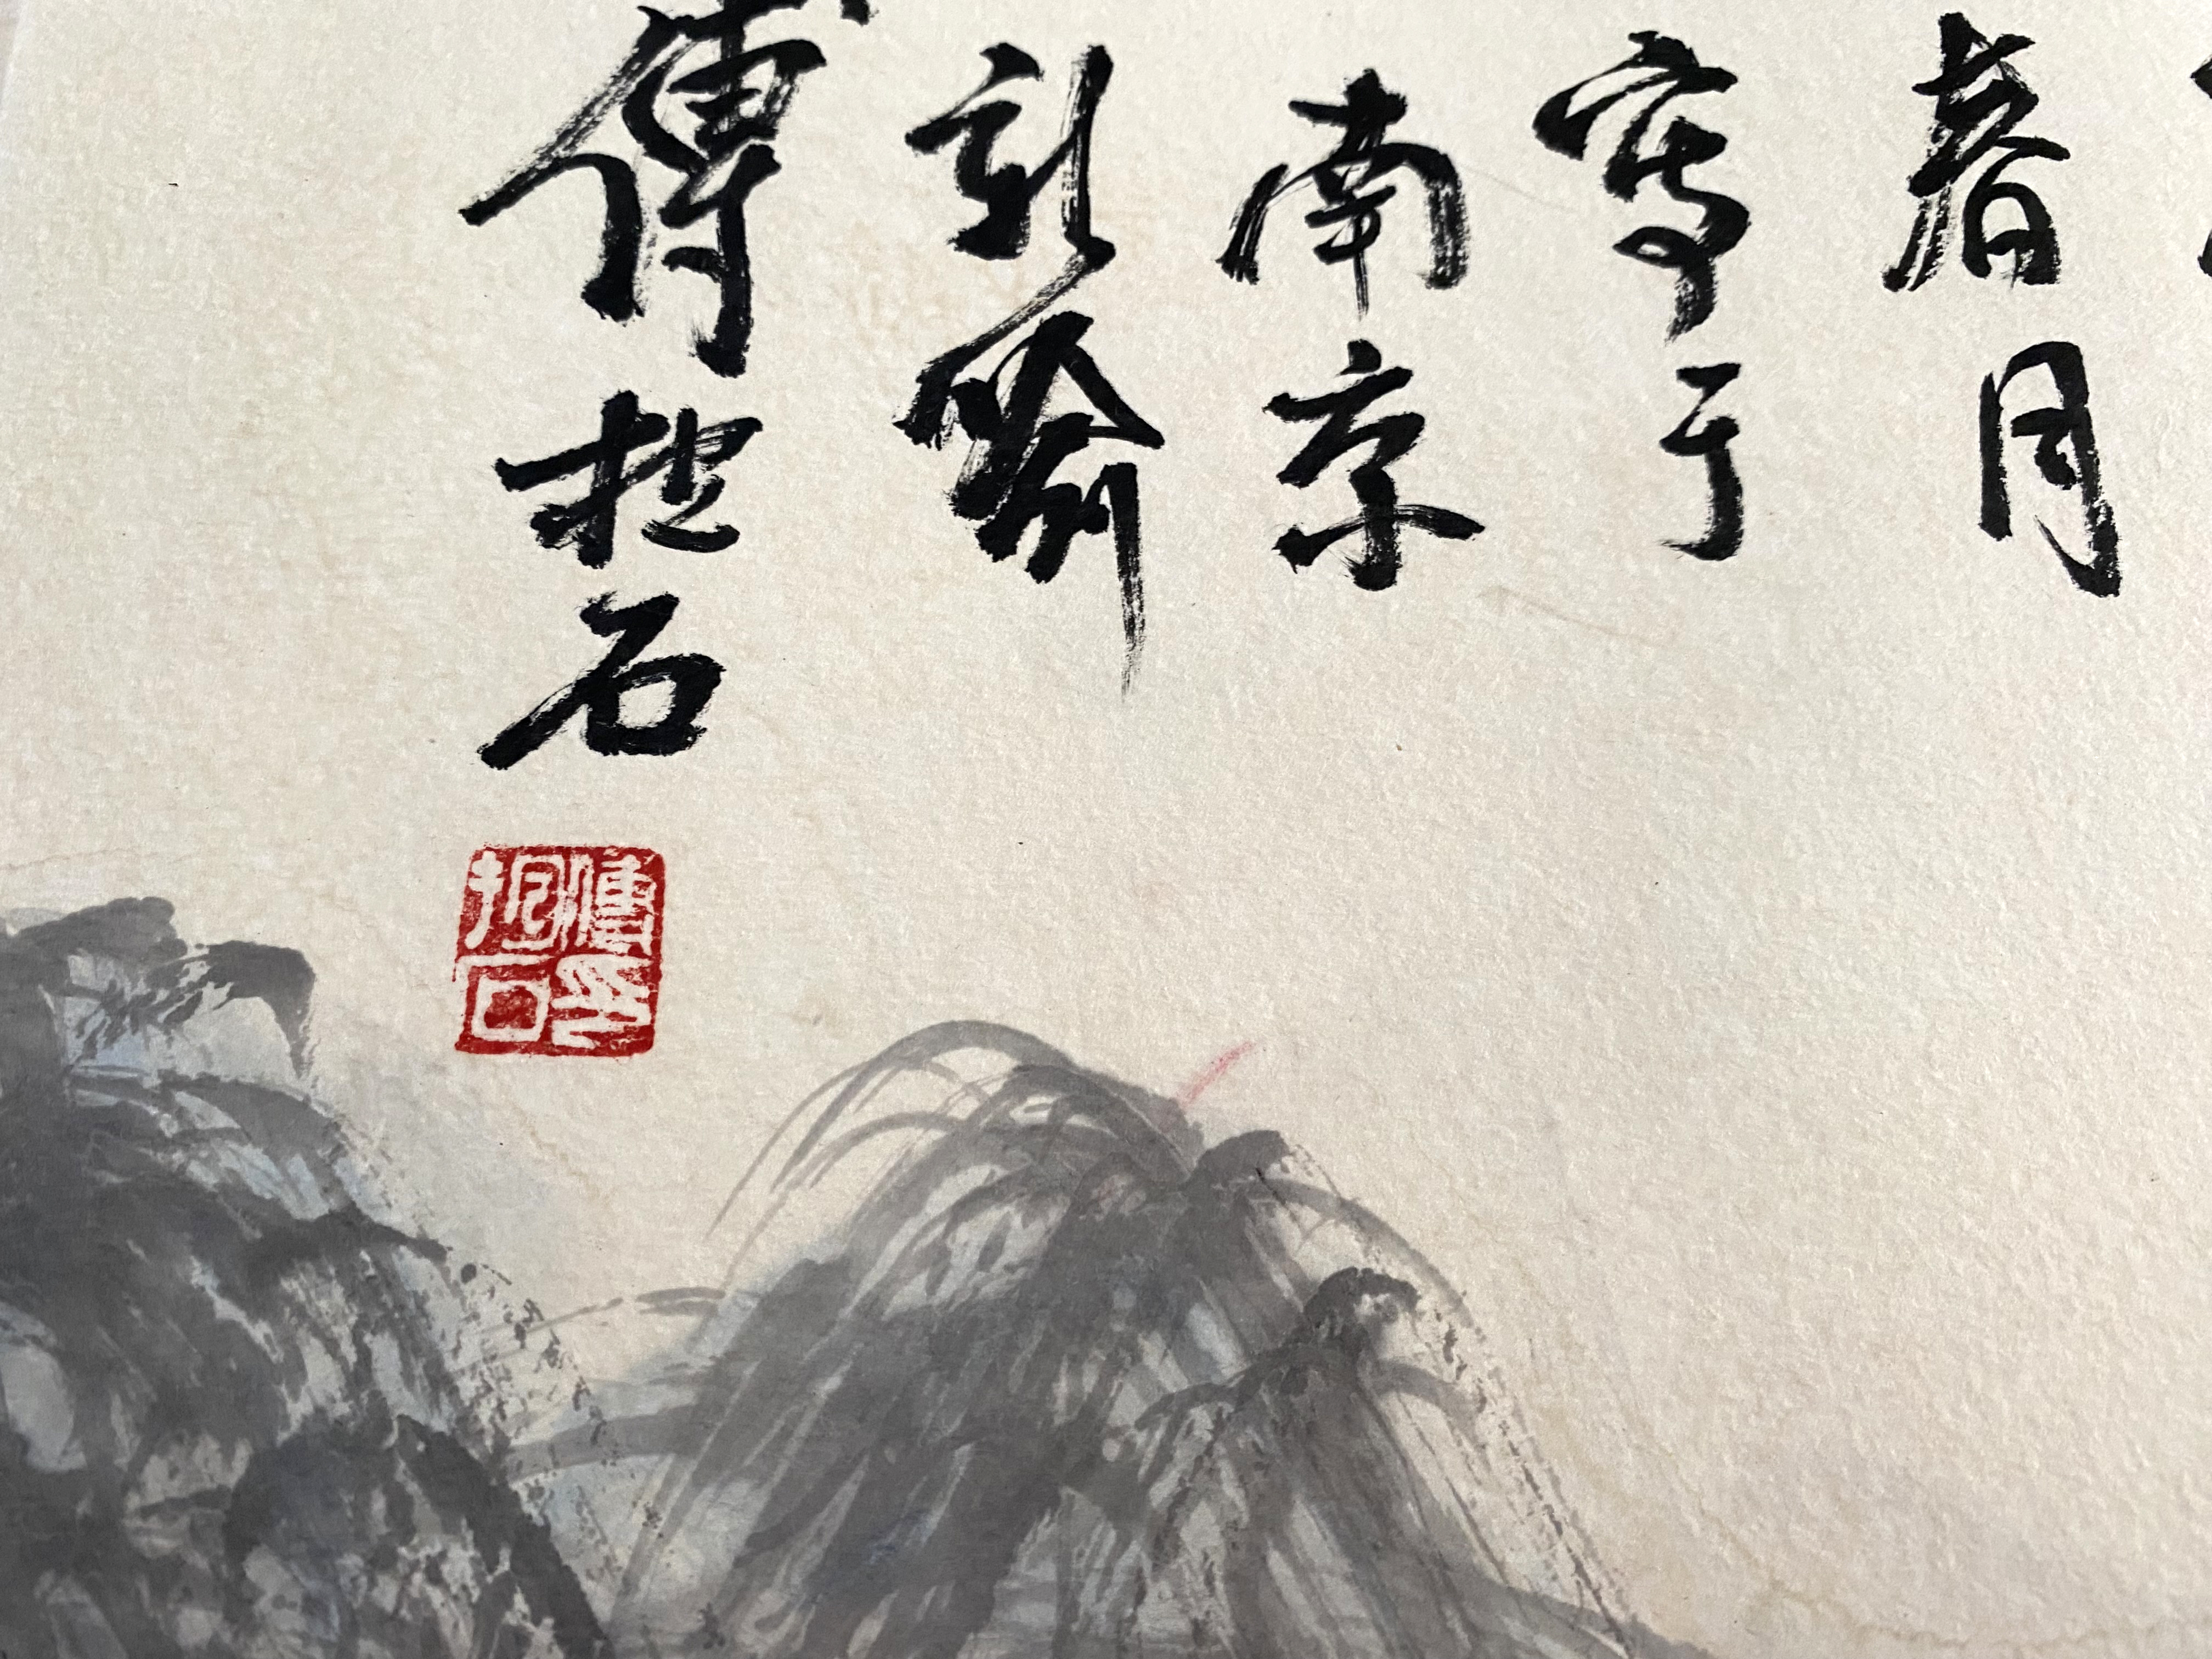 春月
寫于
南京
新喻
傅抱石
傅抱石印